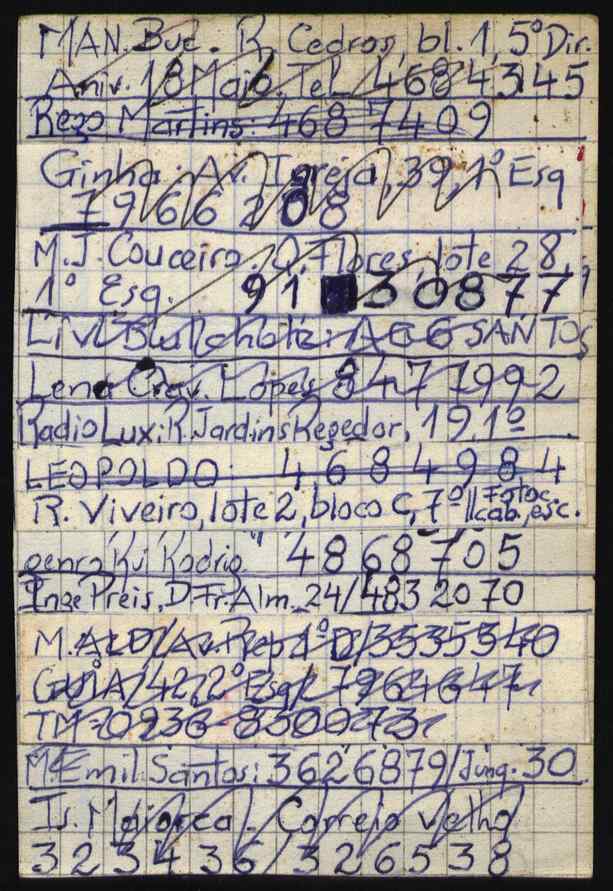 MAN. Buc. R. Cedros, bl. 1, 5º Dir.
Aniv. 18 Maio. Tel. 468 43 45
Rego Martins: 468 7409
Ginha: Av. Igreja, 39, 1º Esq
7966 208
M.J. Couceiro. Q. Flores, lote 28,
1º Esq. 91 30877
SANTOS
Lena Crav. Lopes 8477992
Radio Lux: R. Jardins Regedor, 19, 1º
LEOPOLDO: 4684984
R. Viveiro, lote 2, bloco C, 7º // Fotoc.
cab, esc.
genro Rui Rodrig 4868705
Inge Preis, D. Fr. Alm. 24/483 2070
M. ALDI/Av. 1º D/3535340
GUIA/42, 2º Esq/ 7964647
TM-0936-8500273
M. Emil. Santos: 3626879/Junq. 30
Is. Maiorca. Correio velho
323436/326538